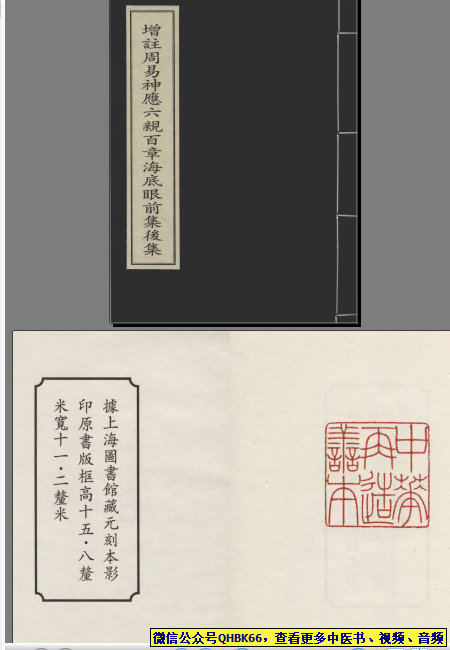 增註周易神應六親百章海底眼前集後集
據上海圖書館藏元刻本影
印原書版框高十五·八釐
米寬十一·二釐米
中華
再造
善本
微信公众号QHBK66，查看更多中医书、视频、音频